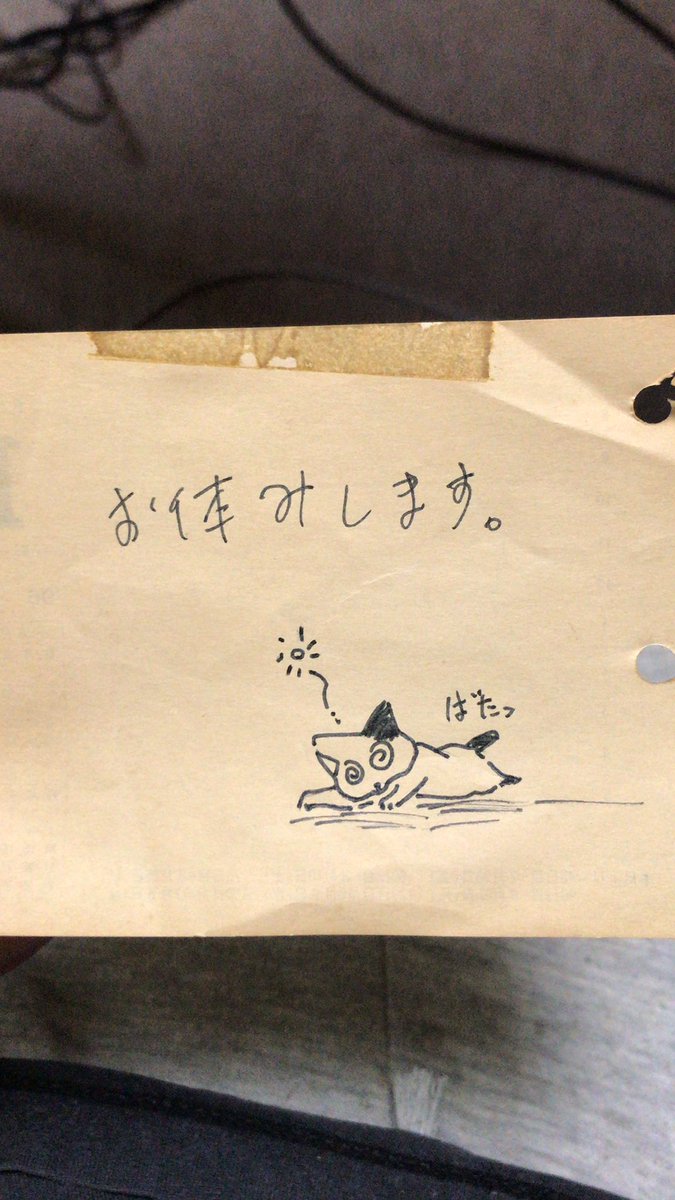 お体みします。
ばたっ